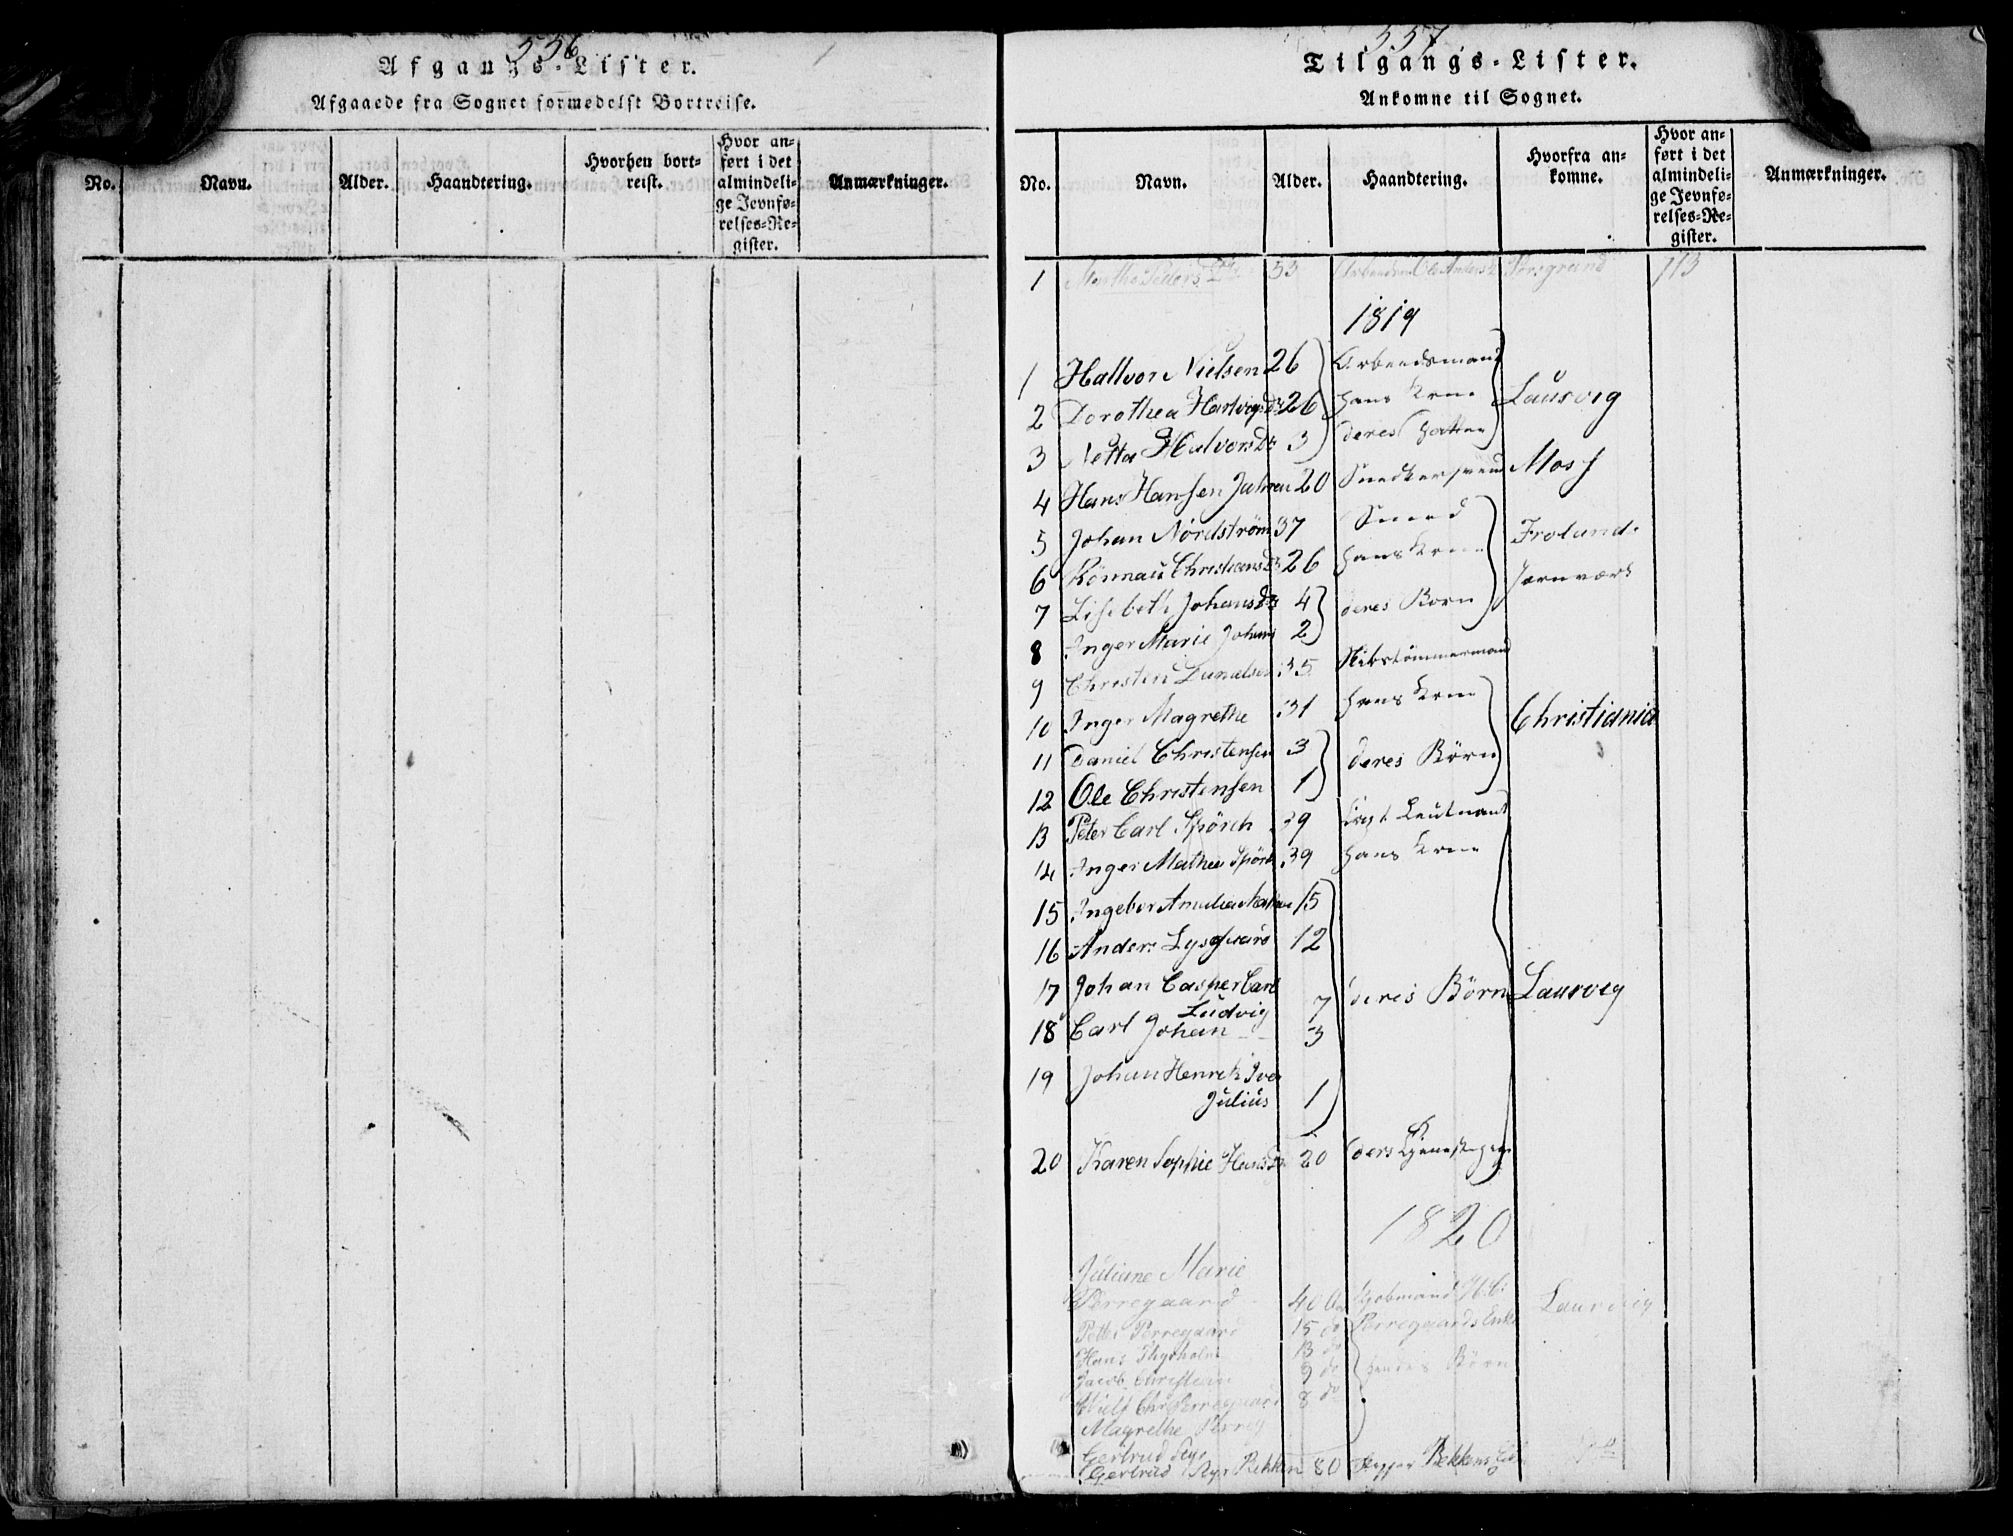 556
Afgangs-Lister.
Afgaaede fra Sognet formedelst Bortreise.
No. Navn. Alder. Haandtering. Hvorhen bortreist. Hvor anført i det almindelige Jevnførelses-Register. Anmærkninger.
557
Tilgangs-Lister.
Ankomne til Sognet.
No. Navn. Alder. Haandtering. Hvorfra ankomne. Hvor anført i det almindelige Jevnførelses-Register. Anmærkninger.
1 Marthe Peders Dtr 53 Porsgrund 113
1819
1 Hallvor Nielsen 26 Arbeidsmand
2 Dorothea Hartvigsdr 26 hans Kone Laurvig
3 Netta Halvorsdr 3 deres Datter
4 Hans Hansen Jahren 20 Snedkersvend Moss
5 Johan Nordstrøm 37 Smed Froland
6 Rönnau Christiansdr 26 hans Kone Jernværk
7 Lisebeth Johansdr 4 deres Børn
8 Inger Marie Johans 2
9 Christen Danielsen 35 Skibstömmermand
10 Inger Magrethe 31 hans Kone Christiania
11 Daniel Christensen 3 deres Børn
12 Ole Christensen 1
13 Peter Carl Spörch 39 Leutnant
14 Inger Mathea Spörch 39 hans Kone
15 Ingebor Amalia 15
16 Anders Lysgaard 12
17 Johan Casper Carl
Ludvig 7 deres Börn Laurvig
18 Carl Johan 3
19 Johan Henrik Iver
Julius 1
20 Karen Sophie Hansdr 20 deres Tjenestepige
1820
Juliane Marie
Perregaard 40 Aar Kjøbmand Laurvig
Petter Perregaard 15 do Perregaards Enke
Hans Thyrholm 13 do
Jacob Christian 9 do hendes Börn
Chr Perregaard 8 do
Magrethe Perreg
Gertrud
Gertrud Bekken 80 Bekkens do